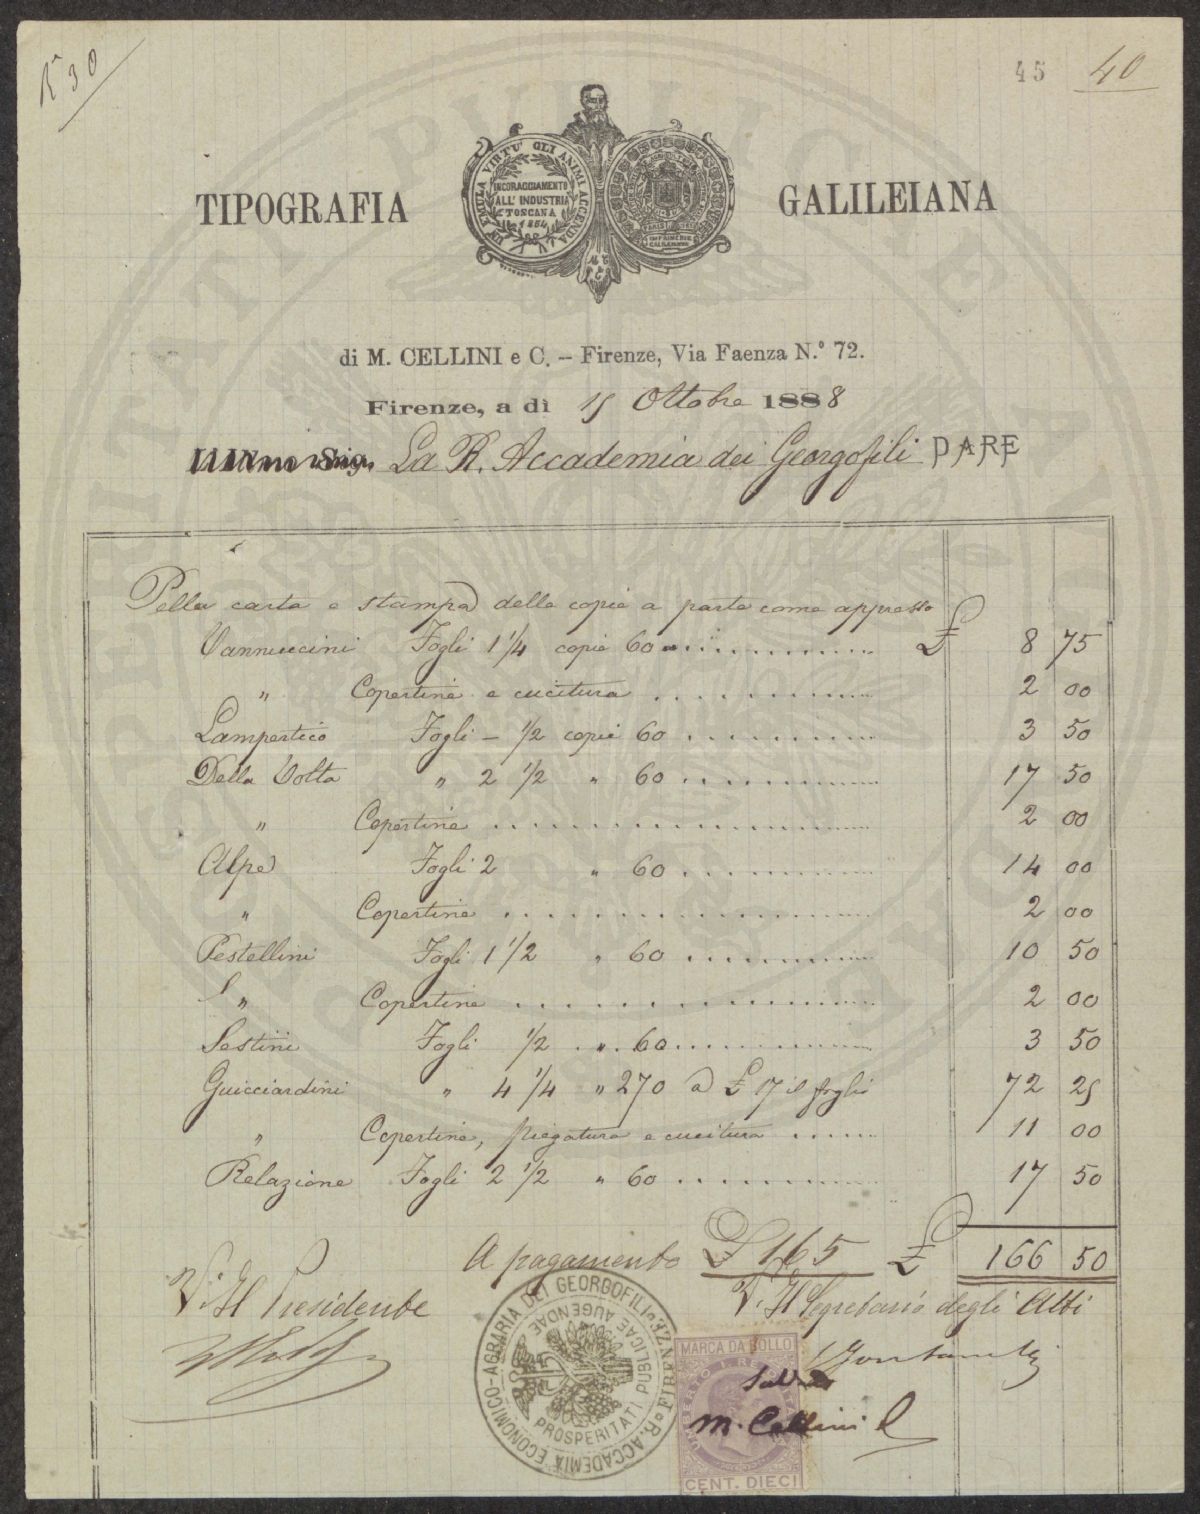 N 30
45 40
TIPOGRAFIA GALILEIANA
IN EMULA VIRTU' GLI ANIMI ACCENDA
INCORAGGIAMENTO
ALL' INDUSTRIA
TOSCANA
1854
di M. CELLINI e C. – Firenze, Via Faenza N.° 72.
Firenze, a dì 15 Ottobre 1888
La R. Accademia dei Georgofili DARE
Pella carta e stampa delle copie a parte come appresso
Vannuccini Fogli 1 1/4 copie 60 £ 8 75
" Copertine e cucitura 2 00
Lampertico Fogli – 1/2 copie 60 3 50
Della Volta " 2 1/2 " 60 17 50
" Copertine 2 00
Alpe Fogli 2 " 60 14 00
" Copertine 2 00
Pestellini Fogli 1 1/2 " 60 10 50
" Copertine 2 00
Sestini Fogli 1/2 " 60 3 50
Guicciardini " 4 1/4 " 270 a £ 17 il foglio 72 25
" Copertine, piegatura e cucitura 11 00
Relazione Fogli 2 1/2 " 60 17 50
A pagamento £ 165 £ 166 50
V. Il Presidente
V. Il Segretario degli Atti
R. ACCADEMIA ECONOMICO-AGRARIA DEI GEORGOFILI FIRENZE
PROSPERITATI PUBLICAE AUGENDAE
MARCA DA BOLLO
UMBERTO I. RE
Saldato
M. Cellini C
CENT. DIECI